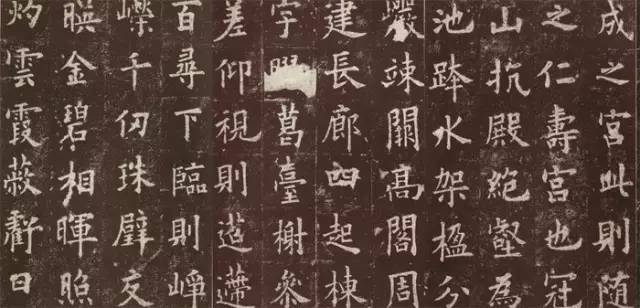 成之宮此則随
之仁壽宮也冠
山抗殿絶壑為
池跨水架楹分
巖竦闕高閣周
建長廊四起棟
宇膠葛臺榭參
差仰視則迢遰
百尋下臨則崢
嶸千仞珠璧交
暎金碧相暉照
灼雲霞蔽虧日